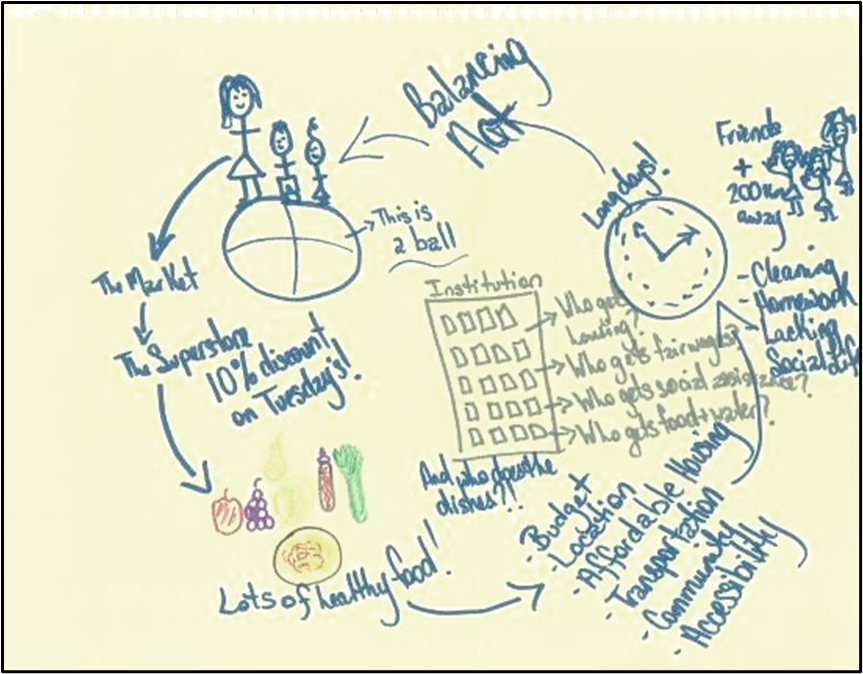 Balancing
Act
This is
a ball
The Market
The Superstore
10% discount
on Tuesday's!
Lots of healthy food!
- Budget
- Location
- Affordable Housing
- Transportation
- Community
- Accessibility
Long days!
Friends
+
200km
away
- Cleaning
- Homework
- Lacking
Social Life
Institution
Who gets
housing?
Who gets fair wages?
Who gets social assistance?
Who gets food + water?
And who does the
dishes?!